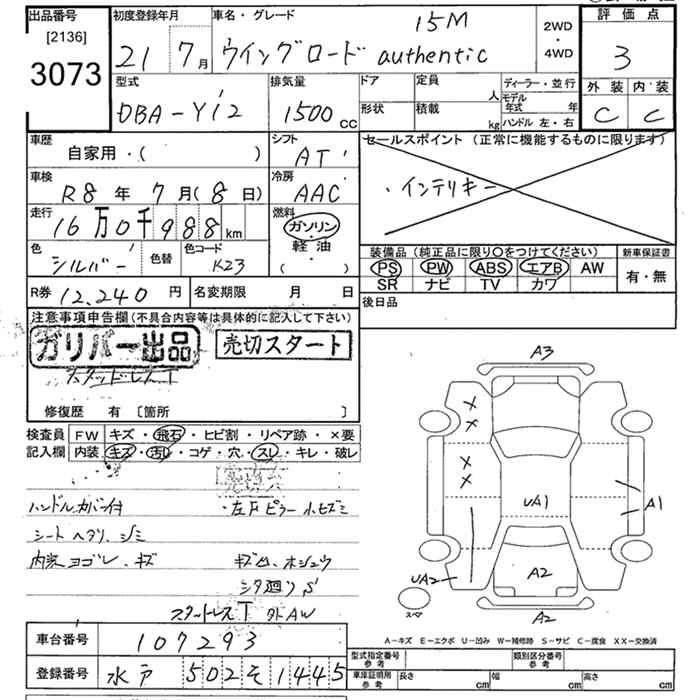 出品番号
[2136]
3073
初度登録年月
21 7月
車名・グレード
15M
ウイングロード authentic
2WD
・
4WD
評価点
3
外装 内装
C C
型式
DBA-Y12
排気量
1500 CC
ドア
形状
定員
人
積載
kg
ディーラー・並行
モデル年式 年
ハンドル 左・右
車歴
自家用・( )
シフト
AT
セールスポイント (正常に機能するものに限ります)
・インテリキー
車検
R8年 7月(8日)
冷房
AAC
走行
16万0千988km
燃料
ガソリン
・
軽油
・
( )
色
シルバー
色替
色コード
K23
装備品 (純正品に限り〇をつけてください)
PS PW ABS エアB AW
SR ナビ TV カワ
新車保証書
有・無
R券 12,240円
名変期限 月 日
後日品
注意事項申告欄(不具合内容等は具体的に記入して下さい)
ガリバー出品 売切スタート
スタッドレスT
修復歴 有 [箇所 ]
検査員
記入欄
FW キズ・飛石・ヒビ割・リペア跡・×要
内装 キズ・汚し・コゲ・穴・スレ・キレ・破レ
ハンドルカバー付
・左Fピラー小ヒズミ
シートヘタリ、シミ
内装ヨゴレ、キズ
キズ凹、ホシュウ
シタ廻りS
スタートレスT 外AW
A3
A1
UA1
A2
UA2
スペア
A2
A-キズ E-エクボ U-凹み W-補修跡 S-サビ C-腐食 XX-交換済
車台番号 107293
登録番号 水戸 502 そ 1445
型式指定番号
参考
類別区分番号
参考
車庫証明用
参考
長さ cm
幅 cm
高さ cm